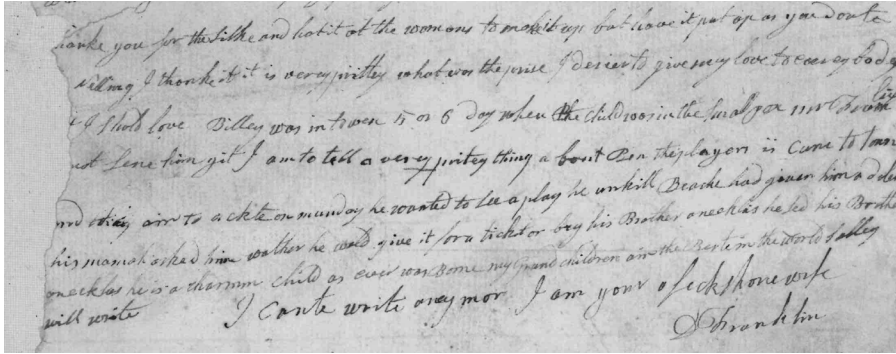 thanke you for the silke and hat it at the womons to make it up but have it put up as you
Nelling I thonke it it is verey prittey what was the prise I desier to give my love to everey bodey
I shold love Billey was in town 5 or 6 day when the child was in the small pox Mr Franklin
not sene him yit I am to tell a verey pritey thing a bout Ben the players is cume to town
and to ackte on munday he wanted to see a play he unkill Beache had given him a
his mamah asked him wather he wold give it for a ticket or buy his Brother a necklas he sed his Brother
a necklas he is a charmm child as ever was Borne my Grand cheldren air the Beste in the world Salley
will write I cante write aney mor I am your afeckshone wife
D Franklin